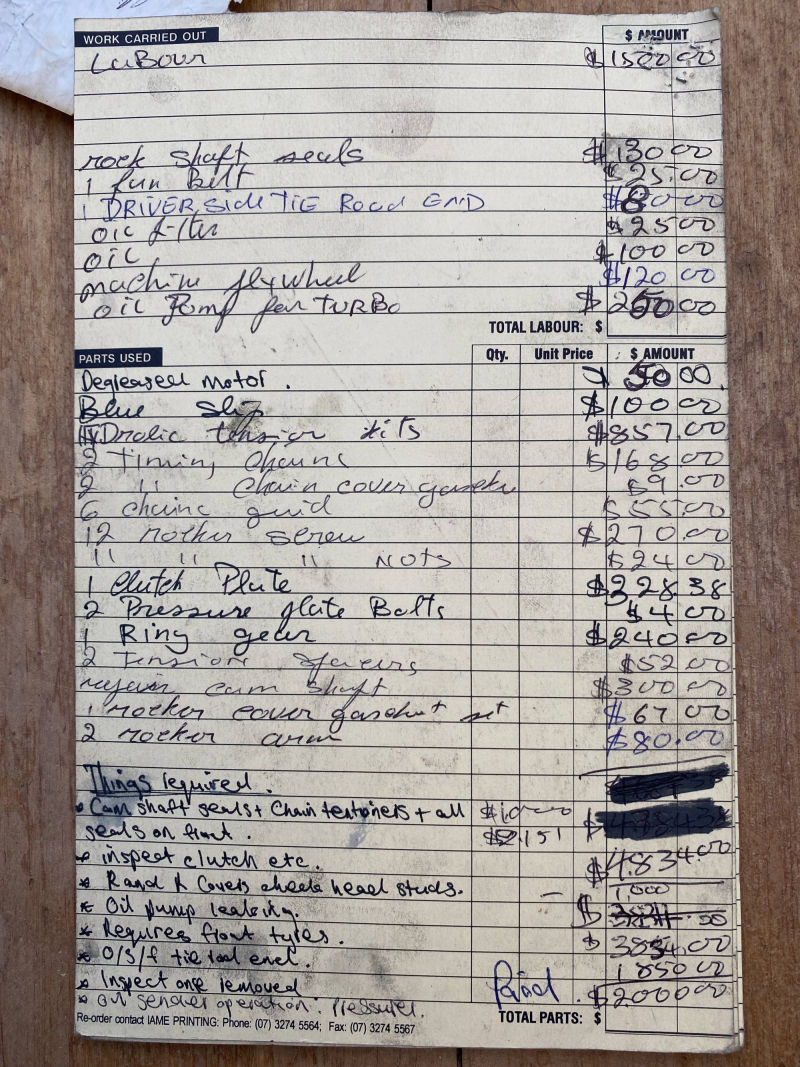 WORK CARRIED OUT $ AMOUNT
LaBour $1500 00
rock shaft seals $130.00
1 fan Belt $25.00
1 DRIVER side TIE Road END $80.00
oil filter $25.00
oil $100.00
machine flywheel $120.00
oil Pomp for TURBO $250.00
TOTAL LABOUR: $
PARTS USED Qty. Unit Price $ AMOUNT
Degreased motor. 50.00
Blue Slip $100.00
Hydrolic tension kits $857.00
2 Timing chains $168.00
2 " chain cover $9.00
6 chain guid $55.00
12 rocker screw $270.00
" " " NOTS $24.00
1 Clutch Plate $328.38
2 Pressure plate Bolts $4.00
1 Ring gear $240.00
2 Tension $52.00
repair cam shaft $300.00
1 rocker cover set $67.00
2 rocker arm $80.00
Things required.
Cam shaft seals + Chain + all
seals on front. 2,151 $
* inspect clutch etc. $4834.00
* R and R Covers check head studs. – 1,000
* Oil pump leaking. $
* Requires front tyres. $ 3834.00
* O/S/f tie rod end. 1850 00
* Inspect one removed Paid. $2000 00
* oil sender operation. Pressure.
TOTAL PARTS: $
Re-order contact IAME PRINTING: Phone: (07) 3274 5564; Fax: (07) 3274 5567